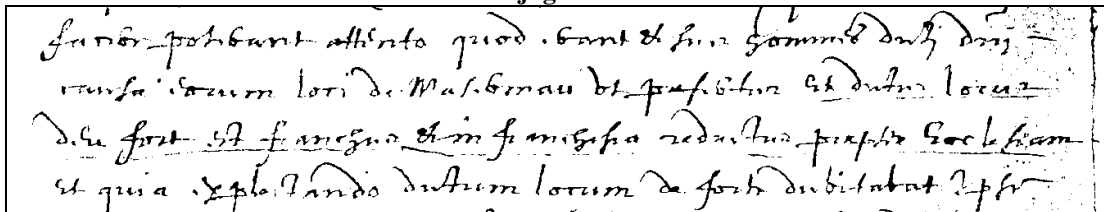 facier potebant attento quod ibant et sui homines dicti dni
causa eorum loci de Masi ut et dictus locus
deu fort est franchus et in franchisia reductus propter Ecclesiam
et quia explectando dictum locum de forti dubitabat ipse